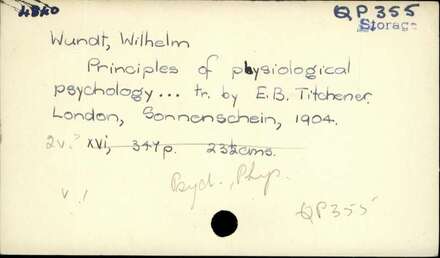 4840
QP355
Storage
Wundt, Wilhelm
Principles of physiological
psychology... tr. by E.B. Titchener.
London, Sonnenschein, 1904.
2v.? xvi, 347p. 23½cms.
v.1
Psych., Phys.
QP355